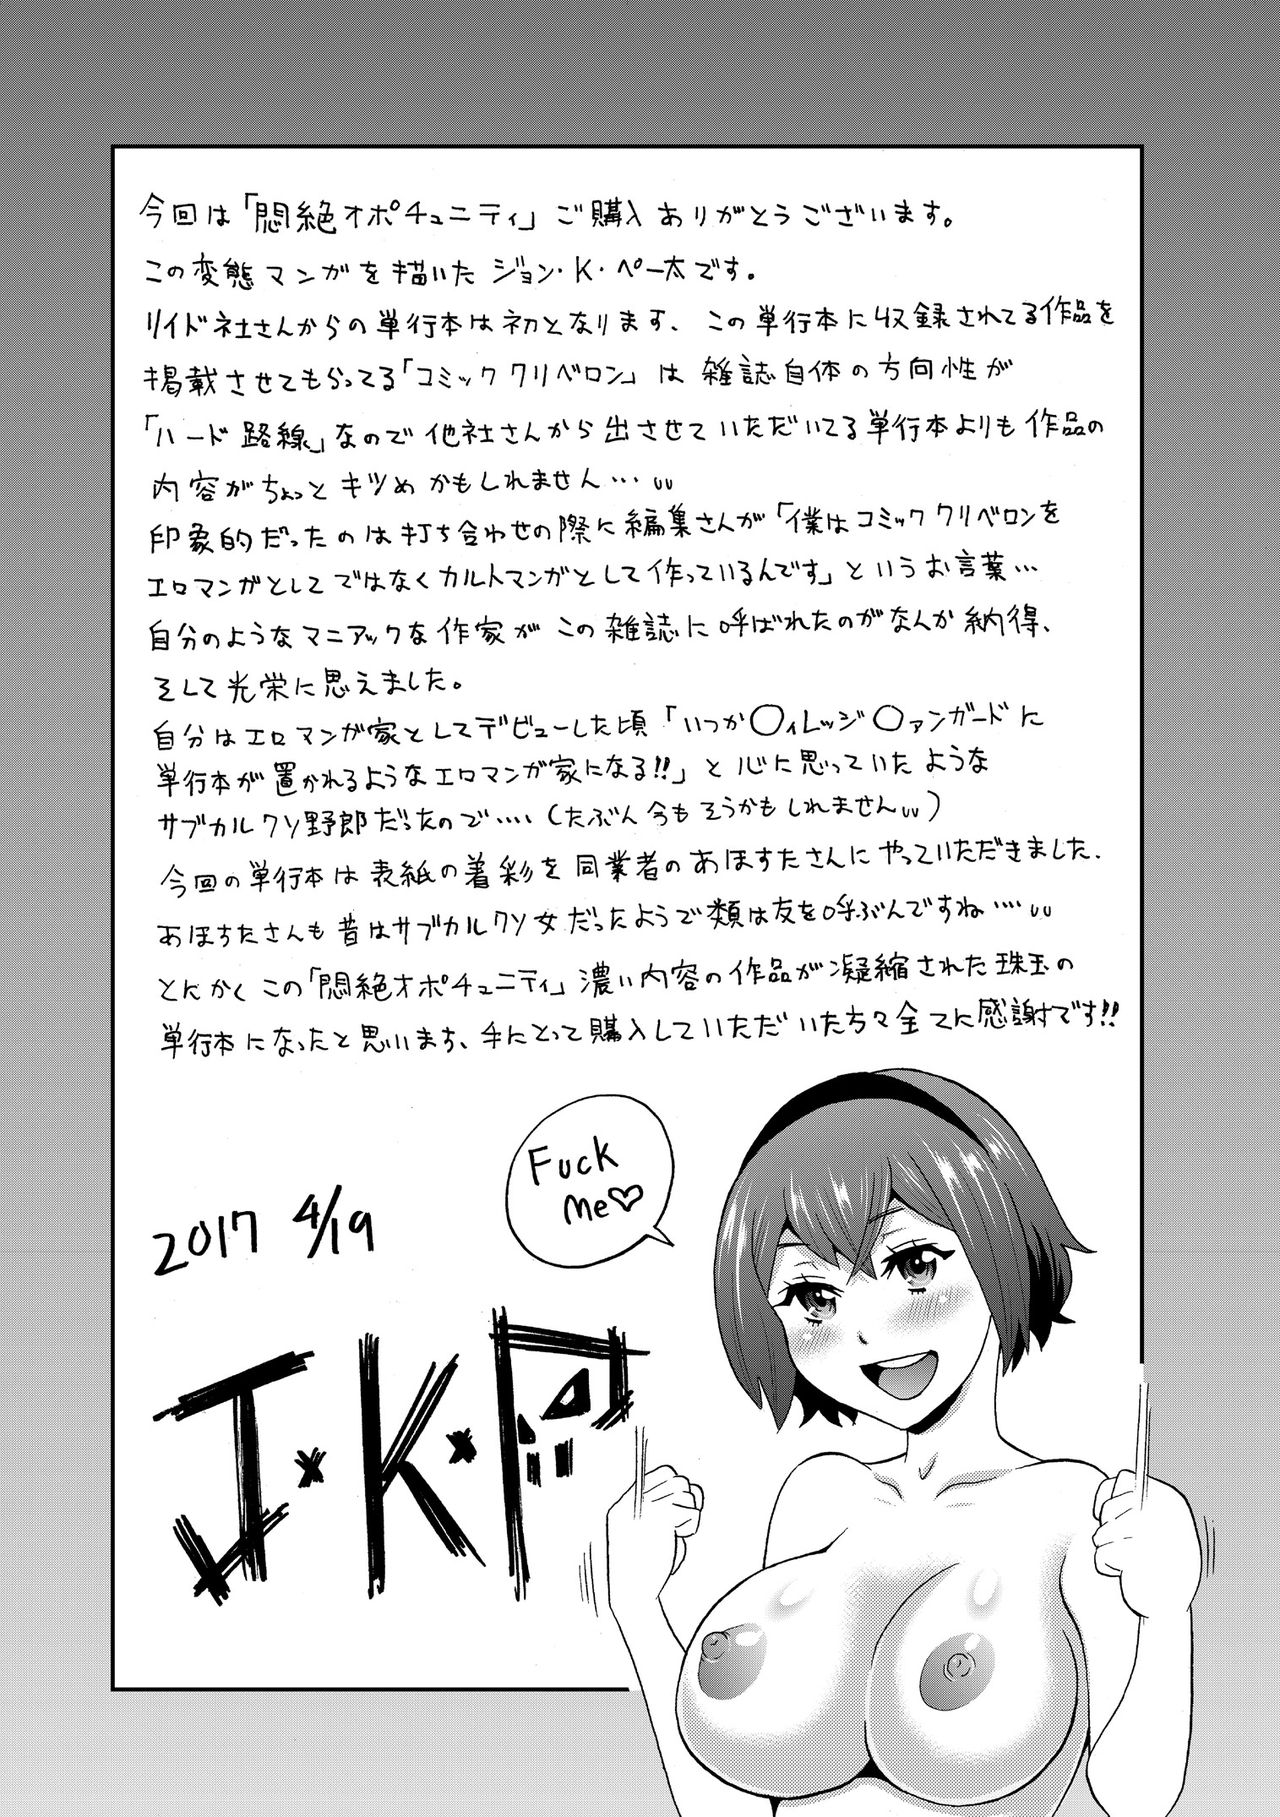 今回は「悶絶オポチュニティ」ご購入ありがとうございます。
この変態マンガを描いたジョン・K・ペー太です。
リイド社さんからの単行本は初となります、この単行本に収録されてる作品を
掲載させてもらってる「コミッククリベロン」は雑誌自体の方向性が
「ハード路線」なので他社さんから出させていただいてる単行本よりも作品の
内容がちょっとキツめかもしれません…
印象的だったのは打ち合わせの際に編集さんが「僕はコミッククリベロンを
エロマンガとしてではなくカルトマンガとして作っているんです」というお言葉…
自分のようなマニアックな作家がこの雑誌に呼ばれたのがなんか納得、
そして光栄に思えました。
自分はエロマンガ家としてデビューした頃「いつか〇ィレッジ〇ァンガードに
単行本が置かれるようなエロマンガ家になる!!」と心に思っていたような
サブカルクソ野郎だったので‥‥(たぶん今もそうかもしれません)
今回の単行本は表紙の着彩を同業者のあほすたさんにやっていただきました、
あほすたさんも昔はサブカルクソ女だったようで類は友を呼ぶんですね‥‥
とにかくこの「悶絶オポチュニティ」濃い内容の作品が凝縮された珠玉の
単行本になったと思います、手にとって購入していただいた方々全てに感謝です!!
Fuck
Me♡
2017 4/19
J・K・P